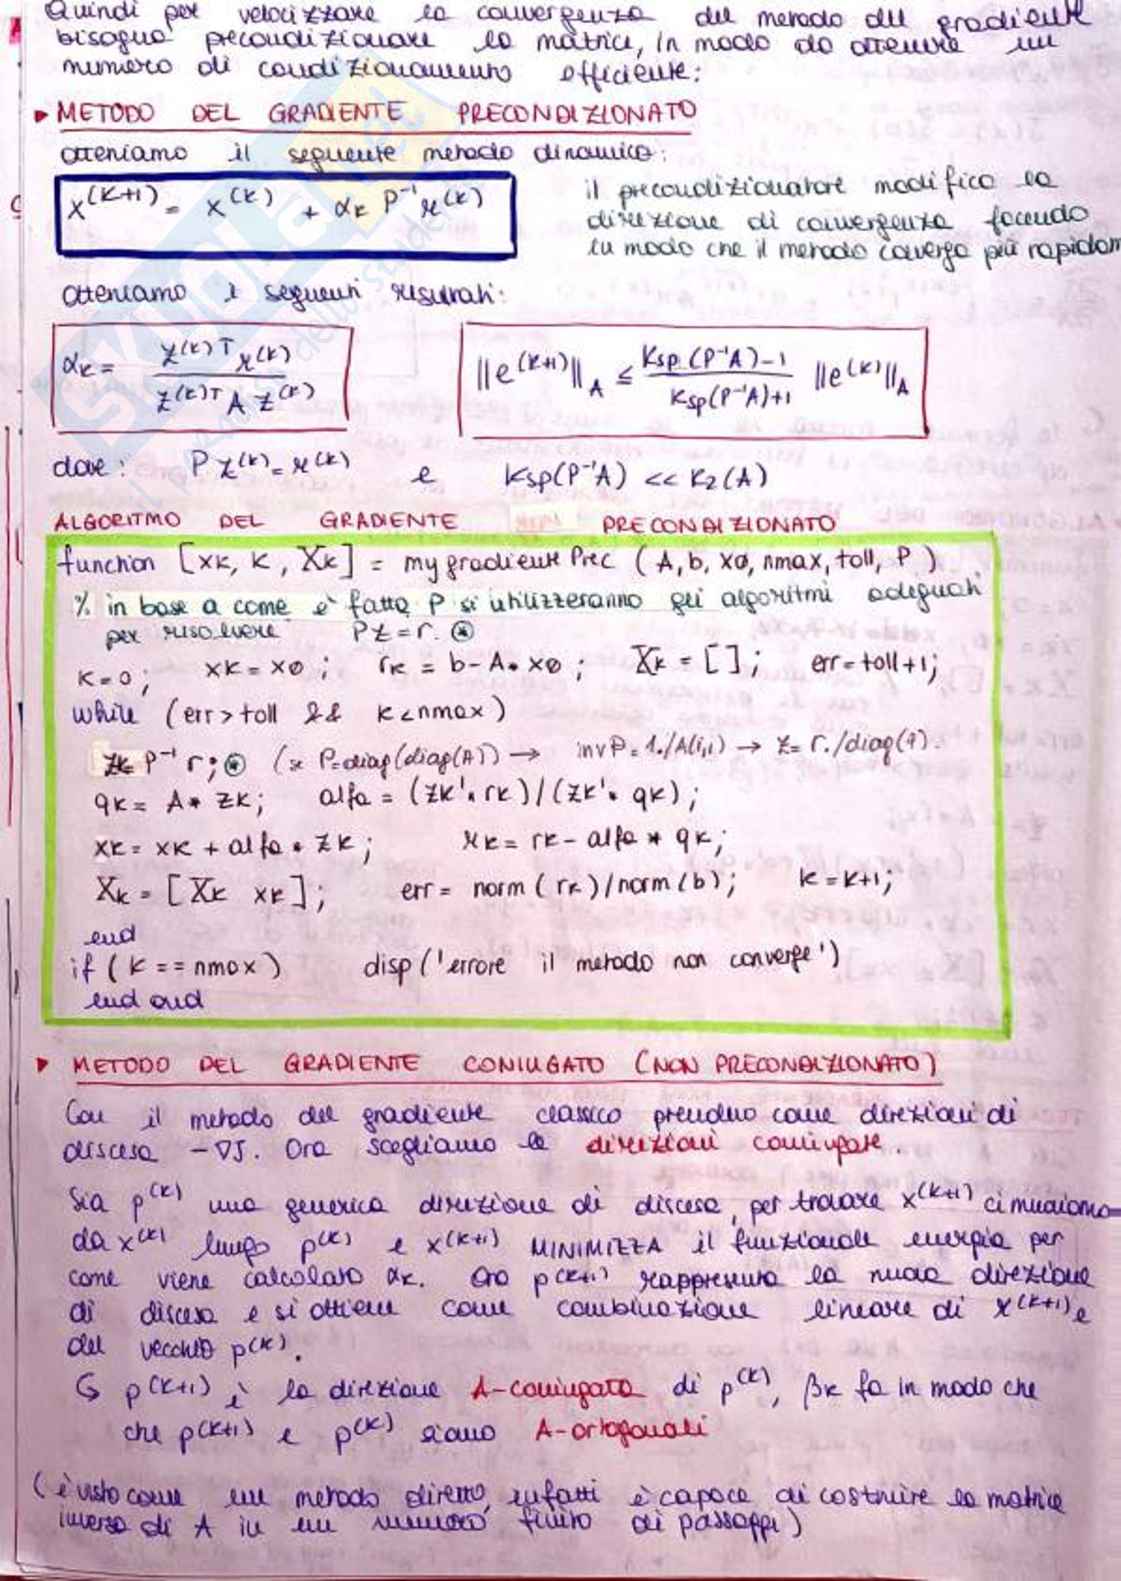 Quindi per velocizzare la convergenza del metodo del gradiente
bisogna precondizionare la matrice, in modo da ottenere un
numero di condizionamento efficiente:
▸ METODO DEL GRADIENTE PRECONDIZIONATO
otteniamo il seguente metodo dinamico:
x^(k+1) = x^(k) + αk P^-1 r^(k)
il precondizionatore modifica la
direzione di convergenza facendo
in modo che il metodo converga più rapidam
Otteniamo i seguenti risultati:
αk = z^(k)T r^(k) / z^(k)T A z^(k)
||e^(k+1)||A ≤ Ksp(P^-1A)-1 / Ksp(P^-1A)+1 ||e^(k)||A
dove: P z^(k) = r^(k) e Ksp(P^-1A) << K2(A)
ALGORITMO DEL GRADIENTE PRECONDIZIONATO
function [xk, k, Xk] = mygradientePrec (A, b, x0, nmax, toll, P)
% in base a come è fatta P si utilizzeranno gli algoritmi adeguati
per risolvere Pz=r. ⊛
k=0; xk=x0; rk = b-A*x0; Xk=[]; err=toll+1;
while (err>toll && k<nmax)
zk= P^-1 r; ⊛ (se P=diag(diag(A)) → invP=1./A(i,i) → z= r./diag(A).
qk= A* zk; alfa = (zk'*rk)/(zk'*qk);
xk= xk + alfa * zk; rk= rk-alfa * qk;
Xk = [Xk xk]; err= norm(rk)/norm(b); k=k+1;
end
if (k==nmax) disp('errore il metodo non converge')
end end
▸ METODO DEL GRADIENTE CONIUGATO (NON PRECONDIZIONATO)
Con il metodo del gradiente classico prendevo come direzioni di
discesa -∇J. Ora scegliamo le direzioni coniugate.
Sia p^(k) una generica direzione di discesa, per trovare x^(k+1) ci muoviamo
da x^(k) lungo p^(k) e x^(k+1) MINIMIZZA il funzionale energia per
come viene calcolato αk. Ora p^(k+1) rappresenta la nuova direzione
di discesa e si ottiene come combinazione lineare di r^(k+1) e
del vecchio p^(k).
↳ p^(k+1) è la direzione A-coniugata di p^(k), βk fa in modo che
che p^(k+1) e p^(k) siano A-ortogonali
(è visto come un metodo diretto, infatti è capace di costruire la matrice
inversa di A in un numero finito di passaggi)